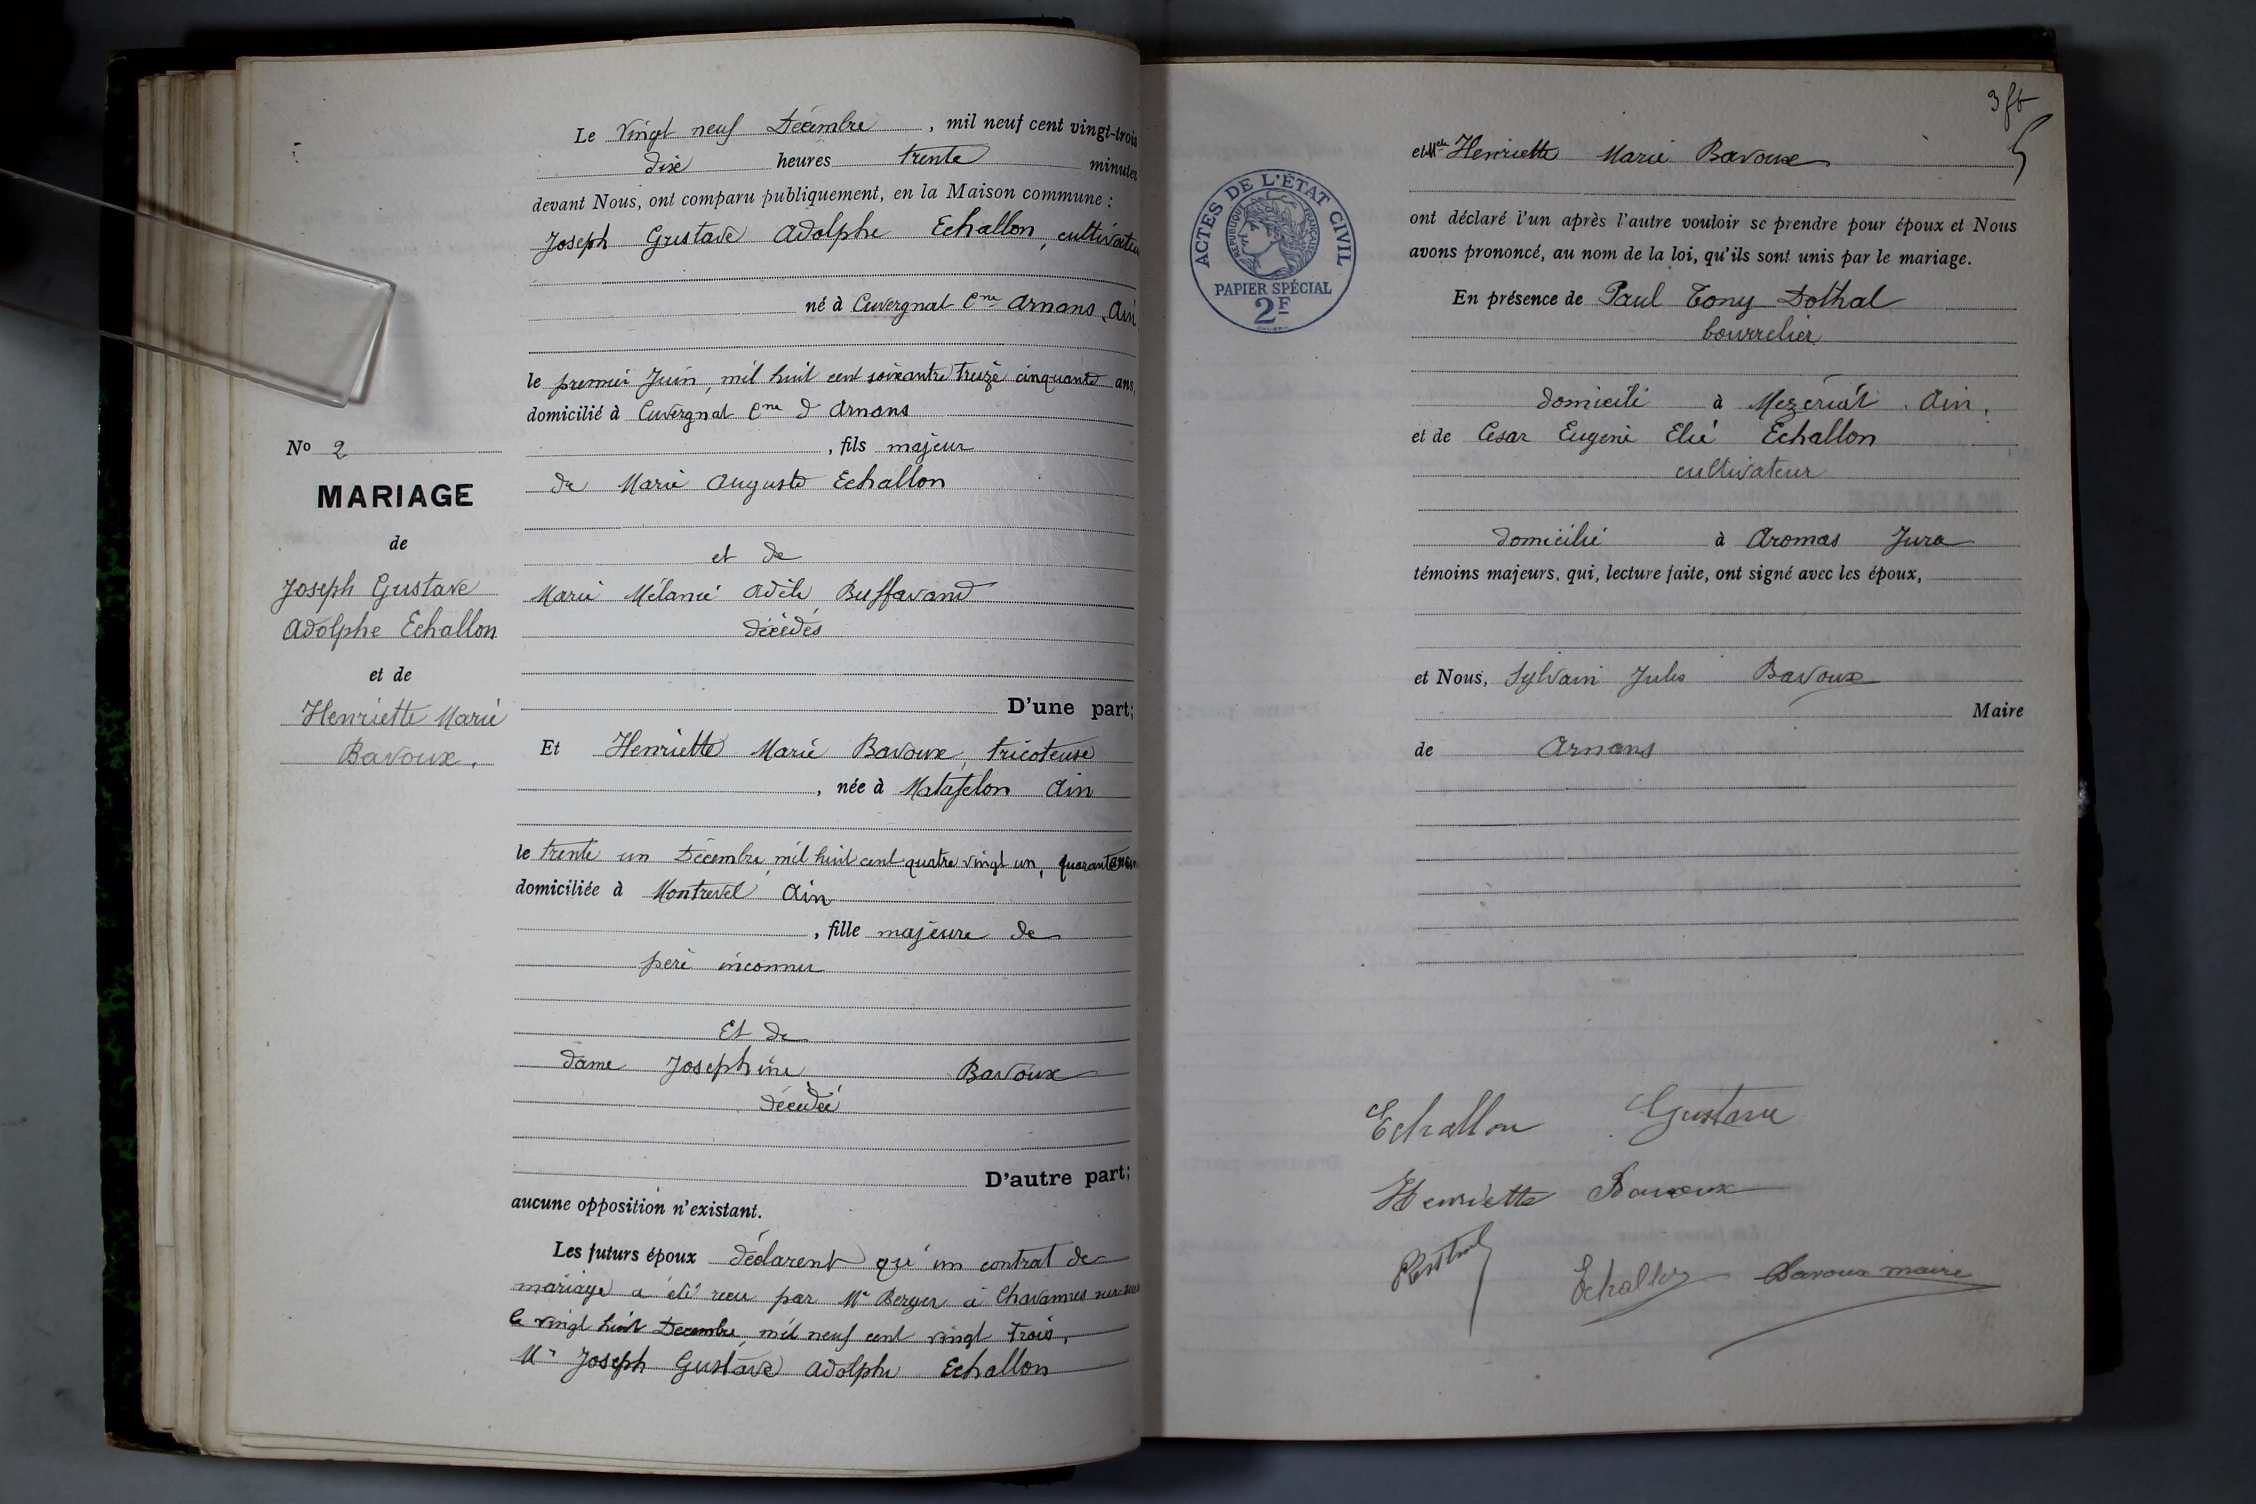 Le Vingt neuf Décembre, mil neuf cent vingt-trois
dix heures trente minutes
devant Nous, ont comparu publiquement, en la Maison commune :
Joseph Gustave Adolphe Echallon, cultivateur
né à Cuvergnat Cne Arnans, Ain
le premier Juin, mil huit cent soixante treize cinquante ans,
domicilié à Cuvergnat Cne d'Arnans
, fils majeur
de Marie Auguste Echallon
et de
Marie Mélanie Adèle Buffavand
décédés
D'une part;
Et Henriette Marie Bavoux, tricoteuse
, née à Matafelon Ain
le trente un Décembre, mil huit cent quatre vingt un, quarante
domiciliée à Montrevel, Ain
, fille majeure de
père inconnu
Et de
dame Joséphine Bavoux
décédée
D'autre part;
aucune opposition n'existant.
Les futurs époux déclarent qu'un contrat de
mariage a été reçu par Me Berger à Chavannes
le vingt huit Décembre, mil neuf cent vingt trois,
Mr Joseph Gustave Adolphe Echallon
No 2
MARIAGE
de
Joseph Gustave
Adolphe Echallon
et de
Henriette Marie
Bavoux.
et Melle Henriette Marie Bavoux
ont déclaré l'un après l'autre vouloir se prendre pour époux et Nous
avons prononcé, au nom de la loi, qu'ils sont unis par le mariage.
En présence de Paul Tony Dothal
bourrelier
domicilié à Mezériat Ain,
et de César Eugène Elie Echallon
cultivateur
domicilié à Aromas Jura
témoins majeurs, qui, lecture faite, ont signé avec les époux,
et Nous, Sylvain Jules Bavoux
Maire
de Arnans
ACTES DE L'ÉTAT CIVIL
RÉPUBLIQUE FRANÇAISE
PAPIER SPÉCIAL
2F
Echallon Gustave
Henriette Bavoux
Echallon Bavoux maire